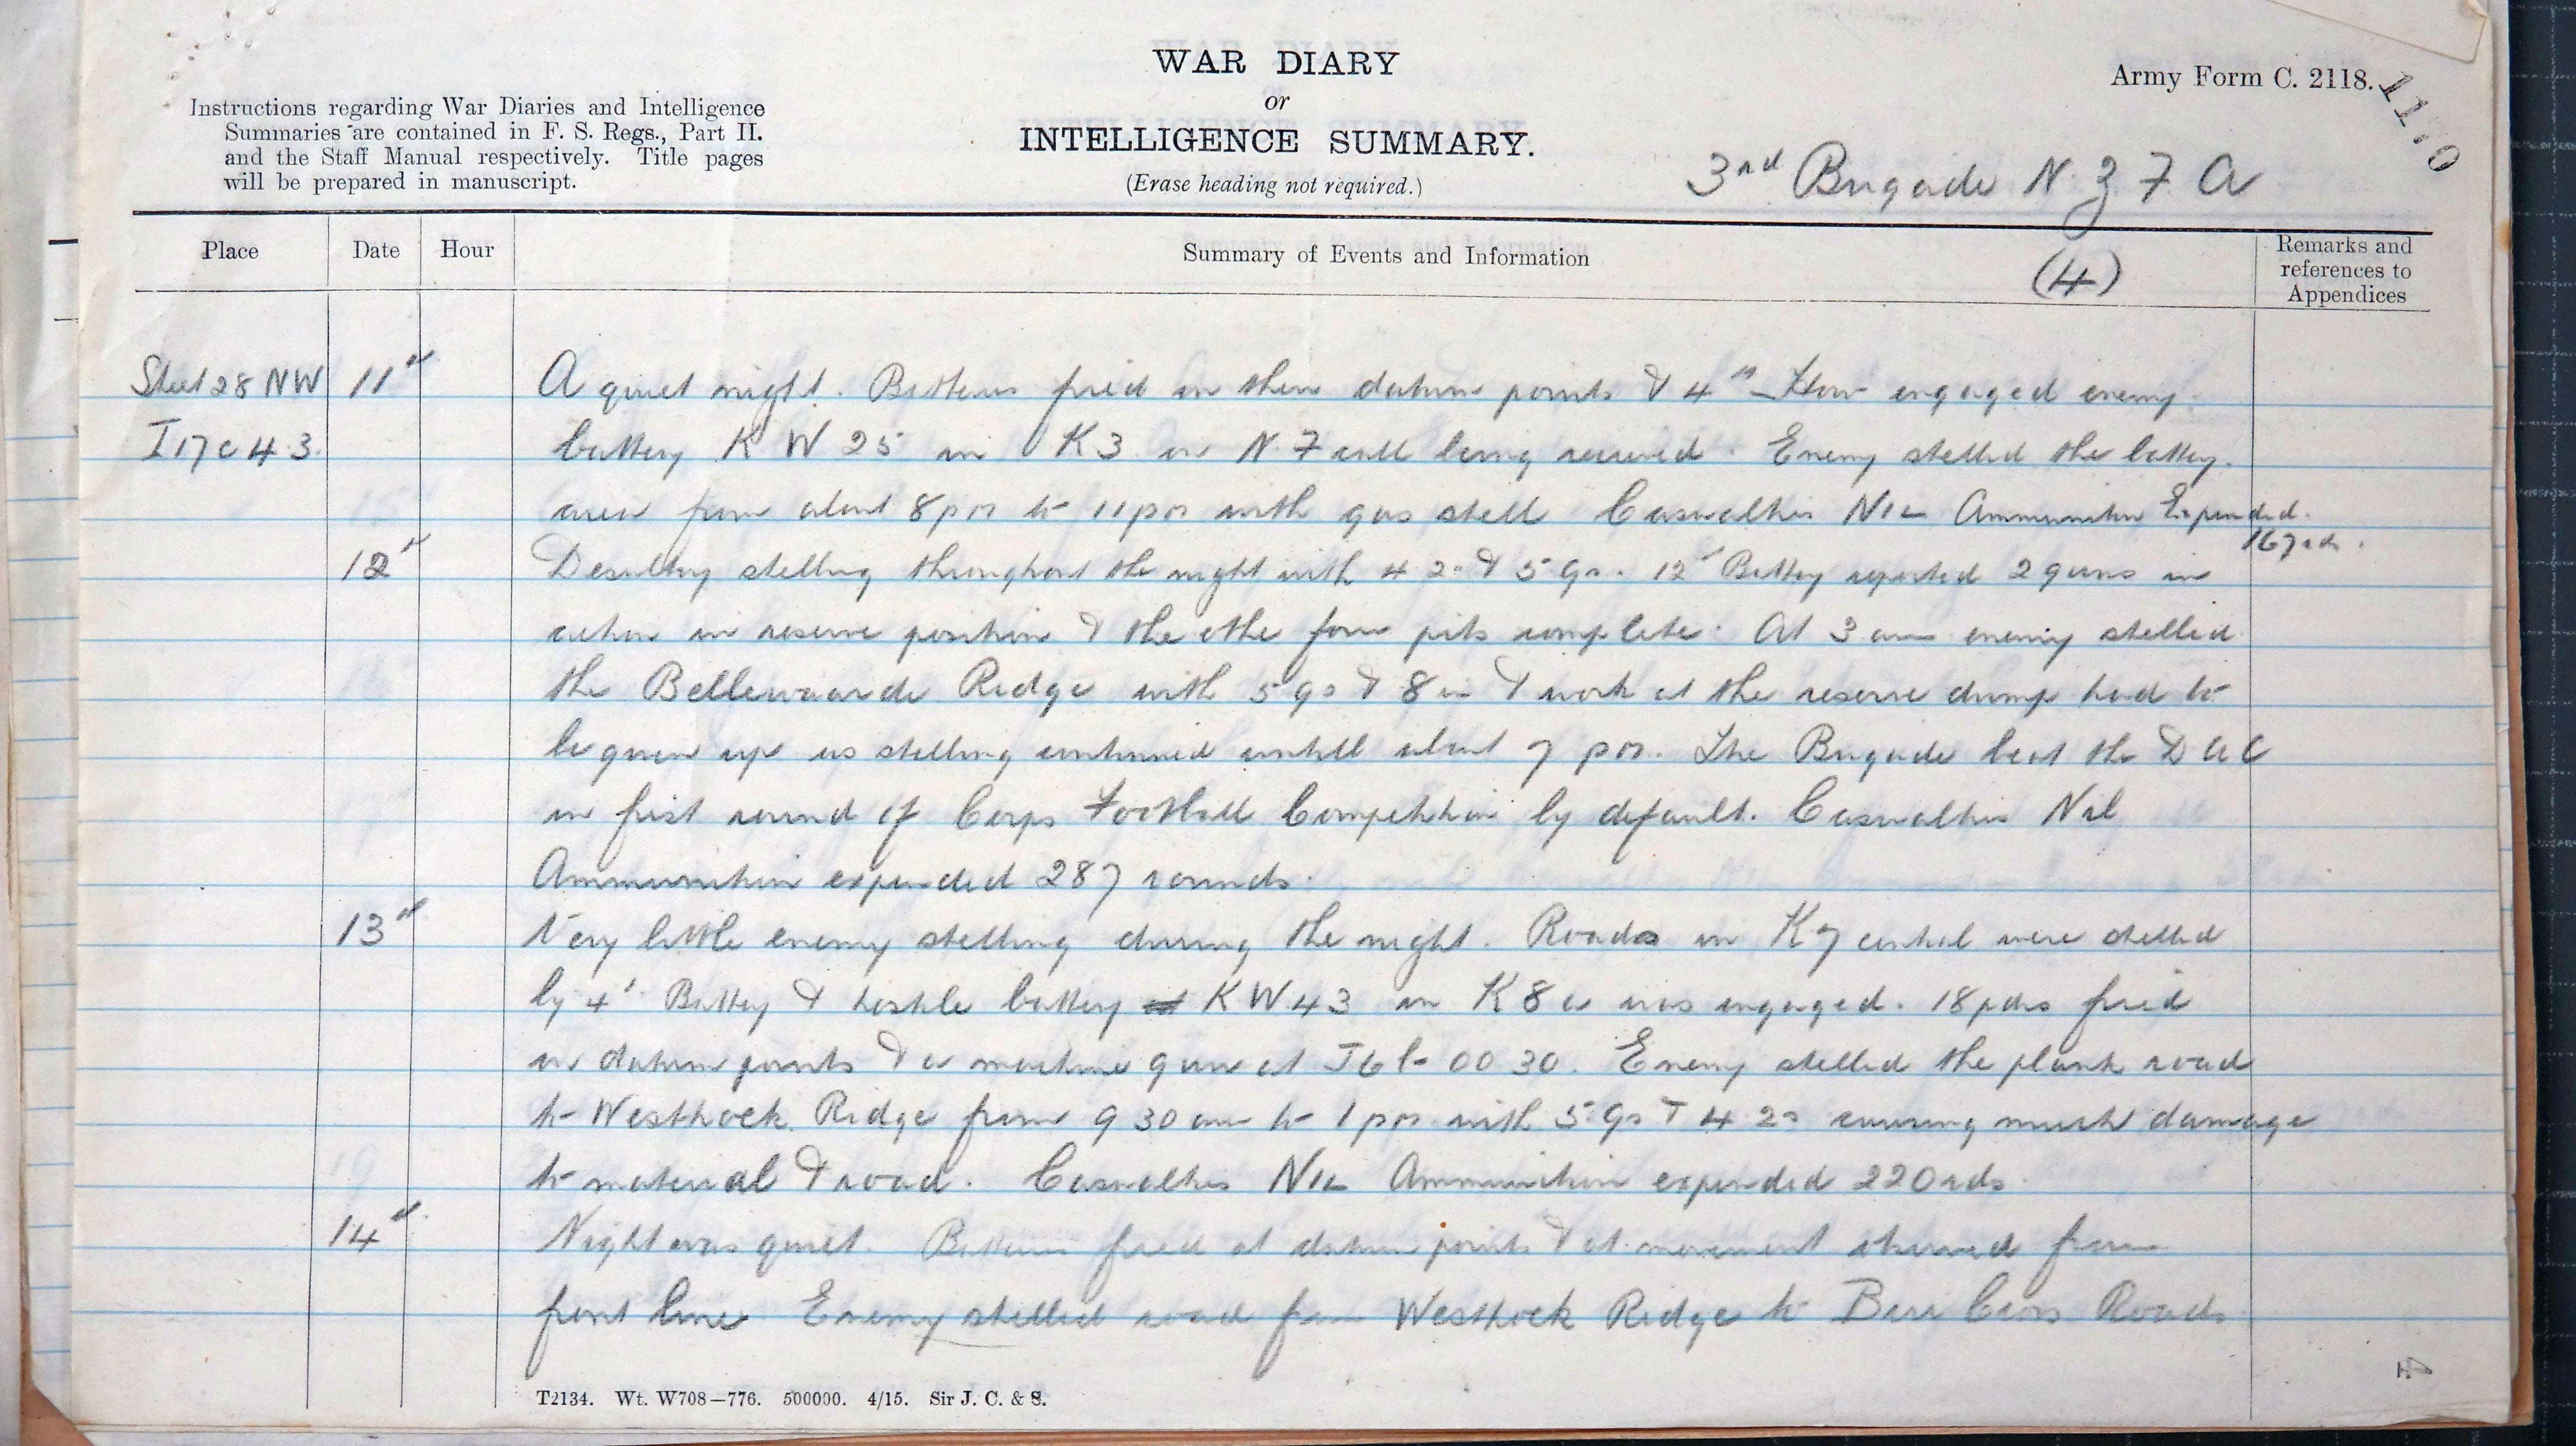 WAR DIARY
or
INTELLIGENCE SUMMARY.
(Erase heading not required.)
Army Form C. 2118.
Instructions regarding War Diaries and Intelligence
Summaries are contained in F. S. Regs., Part II.
and the Staff Manual respectively. Title pages
will be prepared in manuscript.
3rd Brigade N Z F A
Place Date Hour Summary of Events and Information (4) Remarks and references to Appendices
Sheet 28 NW 11th A quiet night. Batteries fired on their datum points & 4th How engaged enemy
I 17 c 4 3. battery K W 25 in K3 on N F call being received. Enemy shelled the battery
area from about 8 pm to 11 pm with gas shell Casualties NIL Ammunition Expended.
167 rds.
12th Desultory shelling throughout the night with 4 2s & 5 9s. 12th Battery reported 2 guns in
action in reserve position & the othe four pits complete. At 3 am enemy shelled
the Bellewaarde Ridge with 5 9s & 8 in & work at the reserve dump had to
be given up as shelling continued untill about 7 pm. The Brigade beat the D A C
in first round of Corps Football Competition by default. Casualties Nil
Ammunition expended 287 rounds.
13th Very little enemy shelling during the night. Roads in K7 central were shelled
by 4th Battery & hostile battery KW 43 in K8 a was engaged. 18 pdrs fired
on datum points & a machine gun at J6 b 00 30. Enemy shelled the plank road
to Westhoek Ridge from 9 30 am to 1 pm with 5 9s & 4 2s causing much damage
to material & road. Casualties NIL Ammunition expended 220 rds.
14th Night was quiet. Batteries fired at datum points & at movement observed from
front line Enemy shelled road from Westhoek Ridge to Birr Cross Roads
T2134. Wt. W708—776. 500000. 4/15. Sir J. C. & S.
4